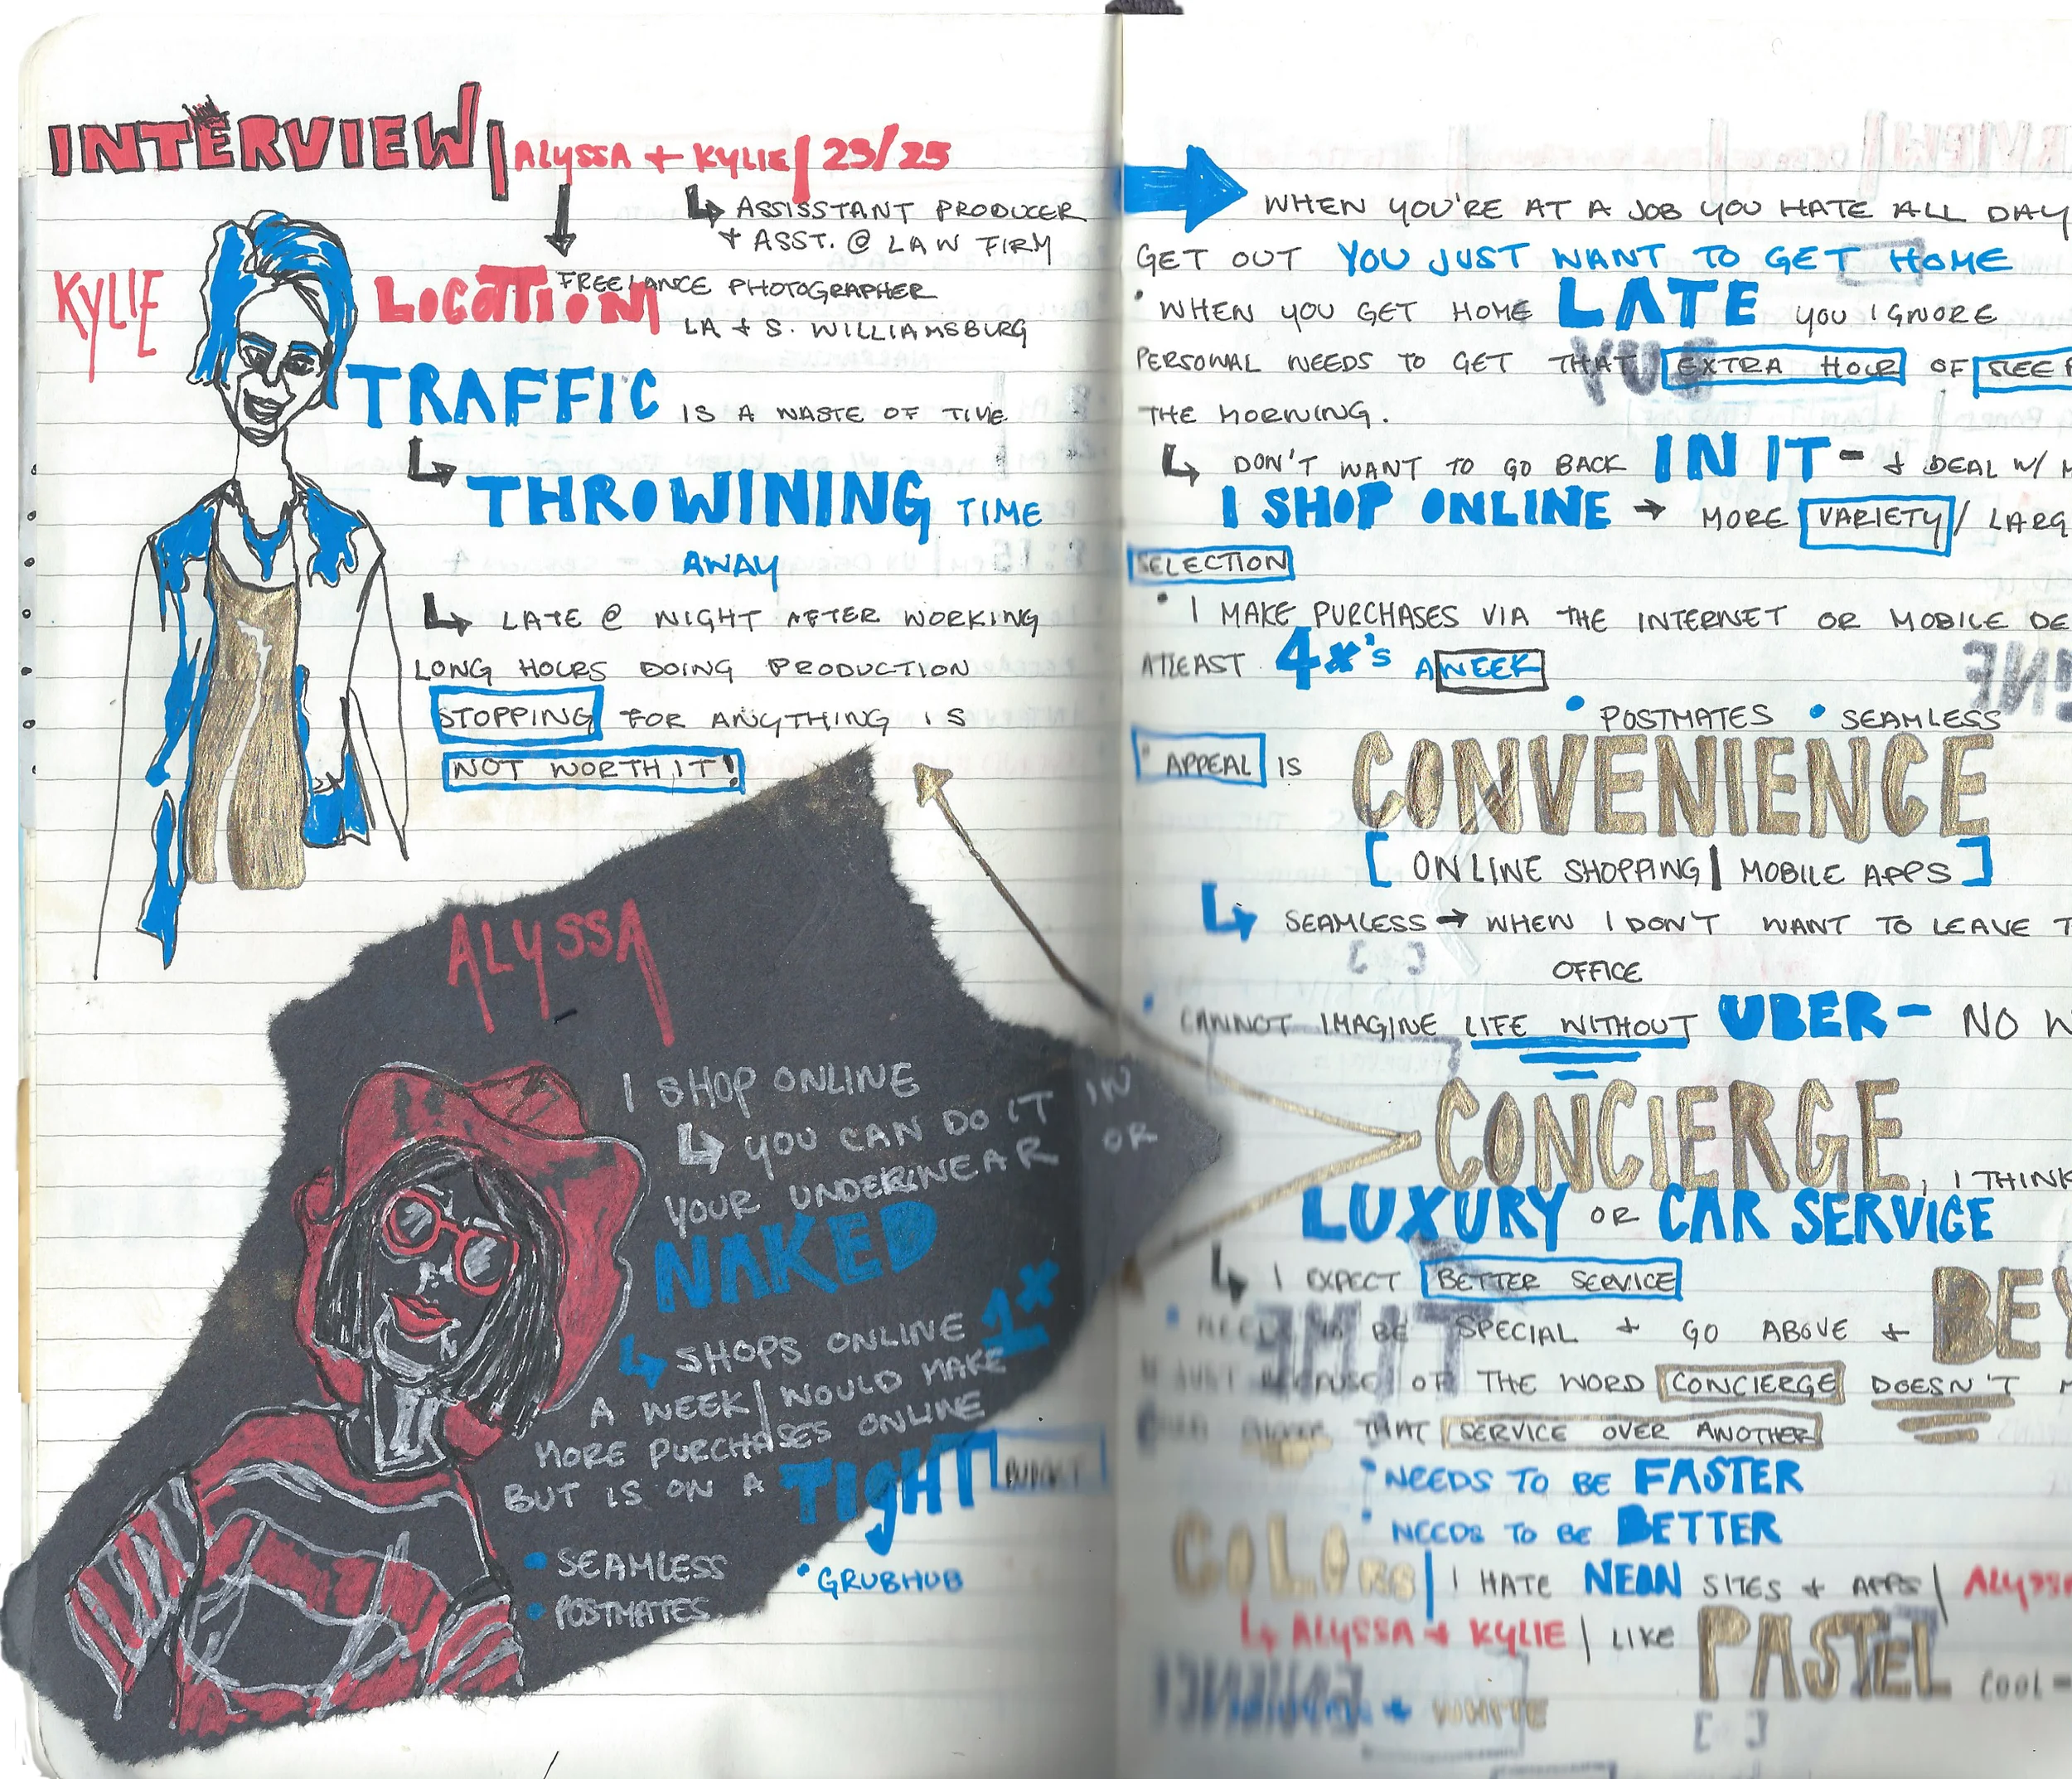 INTERVIEW | ALYSSA + KYLIE | 23/25
↳ ASSISSTANT PRODUCER
+ ASST. @ LAW FIRM
FREELANCE PHOTOGRAPHER
KYLIE
LOCATION
LA + S. WILLIAMSBURG
TRAFFIC IS A WASTE OF TIME
↳ THROWINING TIME
AWAY
↳ LATE @ NIGHT AFTER WORKING
LONG HOURS DOING PRODUCTION
STOPPING FOR ANYTHING IS
NOT WORTH IT!
ALYSSA
I SHOP ONLINE
↳ YOU CAN DO IT IN
YOUR UNDERWEAR OR
NAKED
↳ SHOPS ONLINE 1x
A WEEK | WOULD MAKE
MORE PURCHASES ONLINE
BUT IS ON A TIGHT BUDGET
• SEAMLESS
• GRUBHUB
• POSTMATES
WHEN YOU'RE AT A JOB YOU HATE ALL DAY
GET OUT YOU JUST WANT TO GET HOME
• WHEN YOU GET HOME LATE YOU IGNORE
PERSONAL NEEDS TO GET THAT EXTRA HOUR OF SLEEP
THE MORNING.
↳ DON'T WANT TO GO BACK IN IT - + DEAL W/
I SHOP ONLINE → MORE VARIETY / LARG
SELECTION
• I MAKE PURCHASES VIA THE INTERNET OR MOBILE DE
ATLEAST 4x's A WEEK
• POSTMATES • SEAMLESS
" APPEAL IS CONVENIENCE
[ ONLINE SHOPPING | MOBILE APPS ]
↳ SEAMLESS → WHEN I DON'T WANT TO LEAVE T
OFFICE
' CANNOT IMAGINE LIFE WITHOUT UBER - NO W
CONCIERGE, I THINK
LUXURY OR CAR SERVICE
↳ I EXPECT BETTER SERVICE
• NEED TO BE SPECIAL + GO ABOVE + BEY
JUST BECAUSE OF THE WORD CONCIERGE DOESN'T
THAT SERVICE OVER ANOTHER
• NEEDS TO BE FASTER
• NEEDS TO BE BETTER
COLORS | I HATE NEON SITES + APPS | ALYSSA
↳ ALYSSA + KYLIE | LIKE PASTEL COOL -
+ WHITE